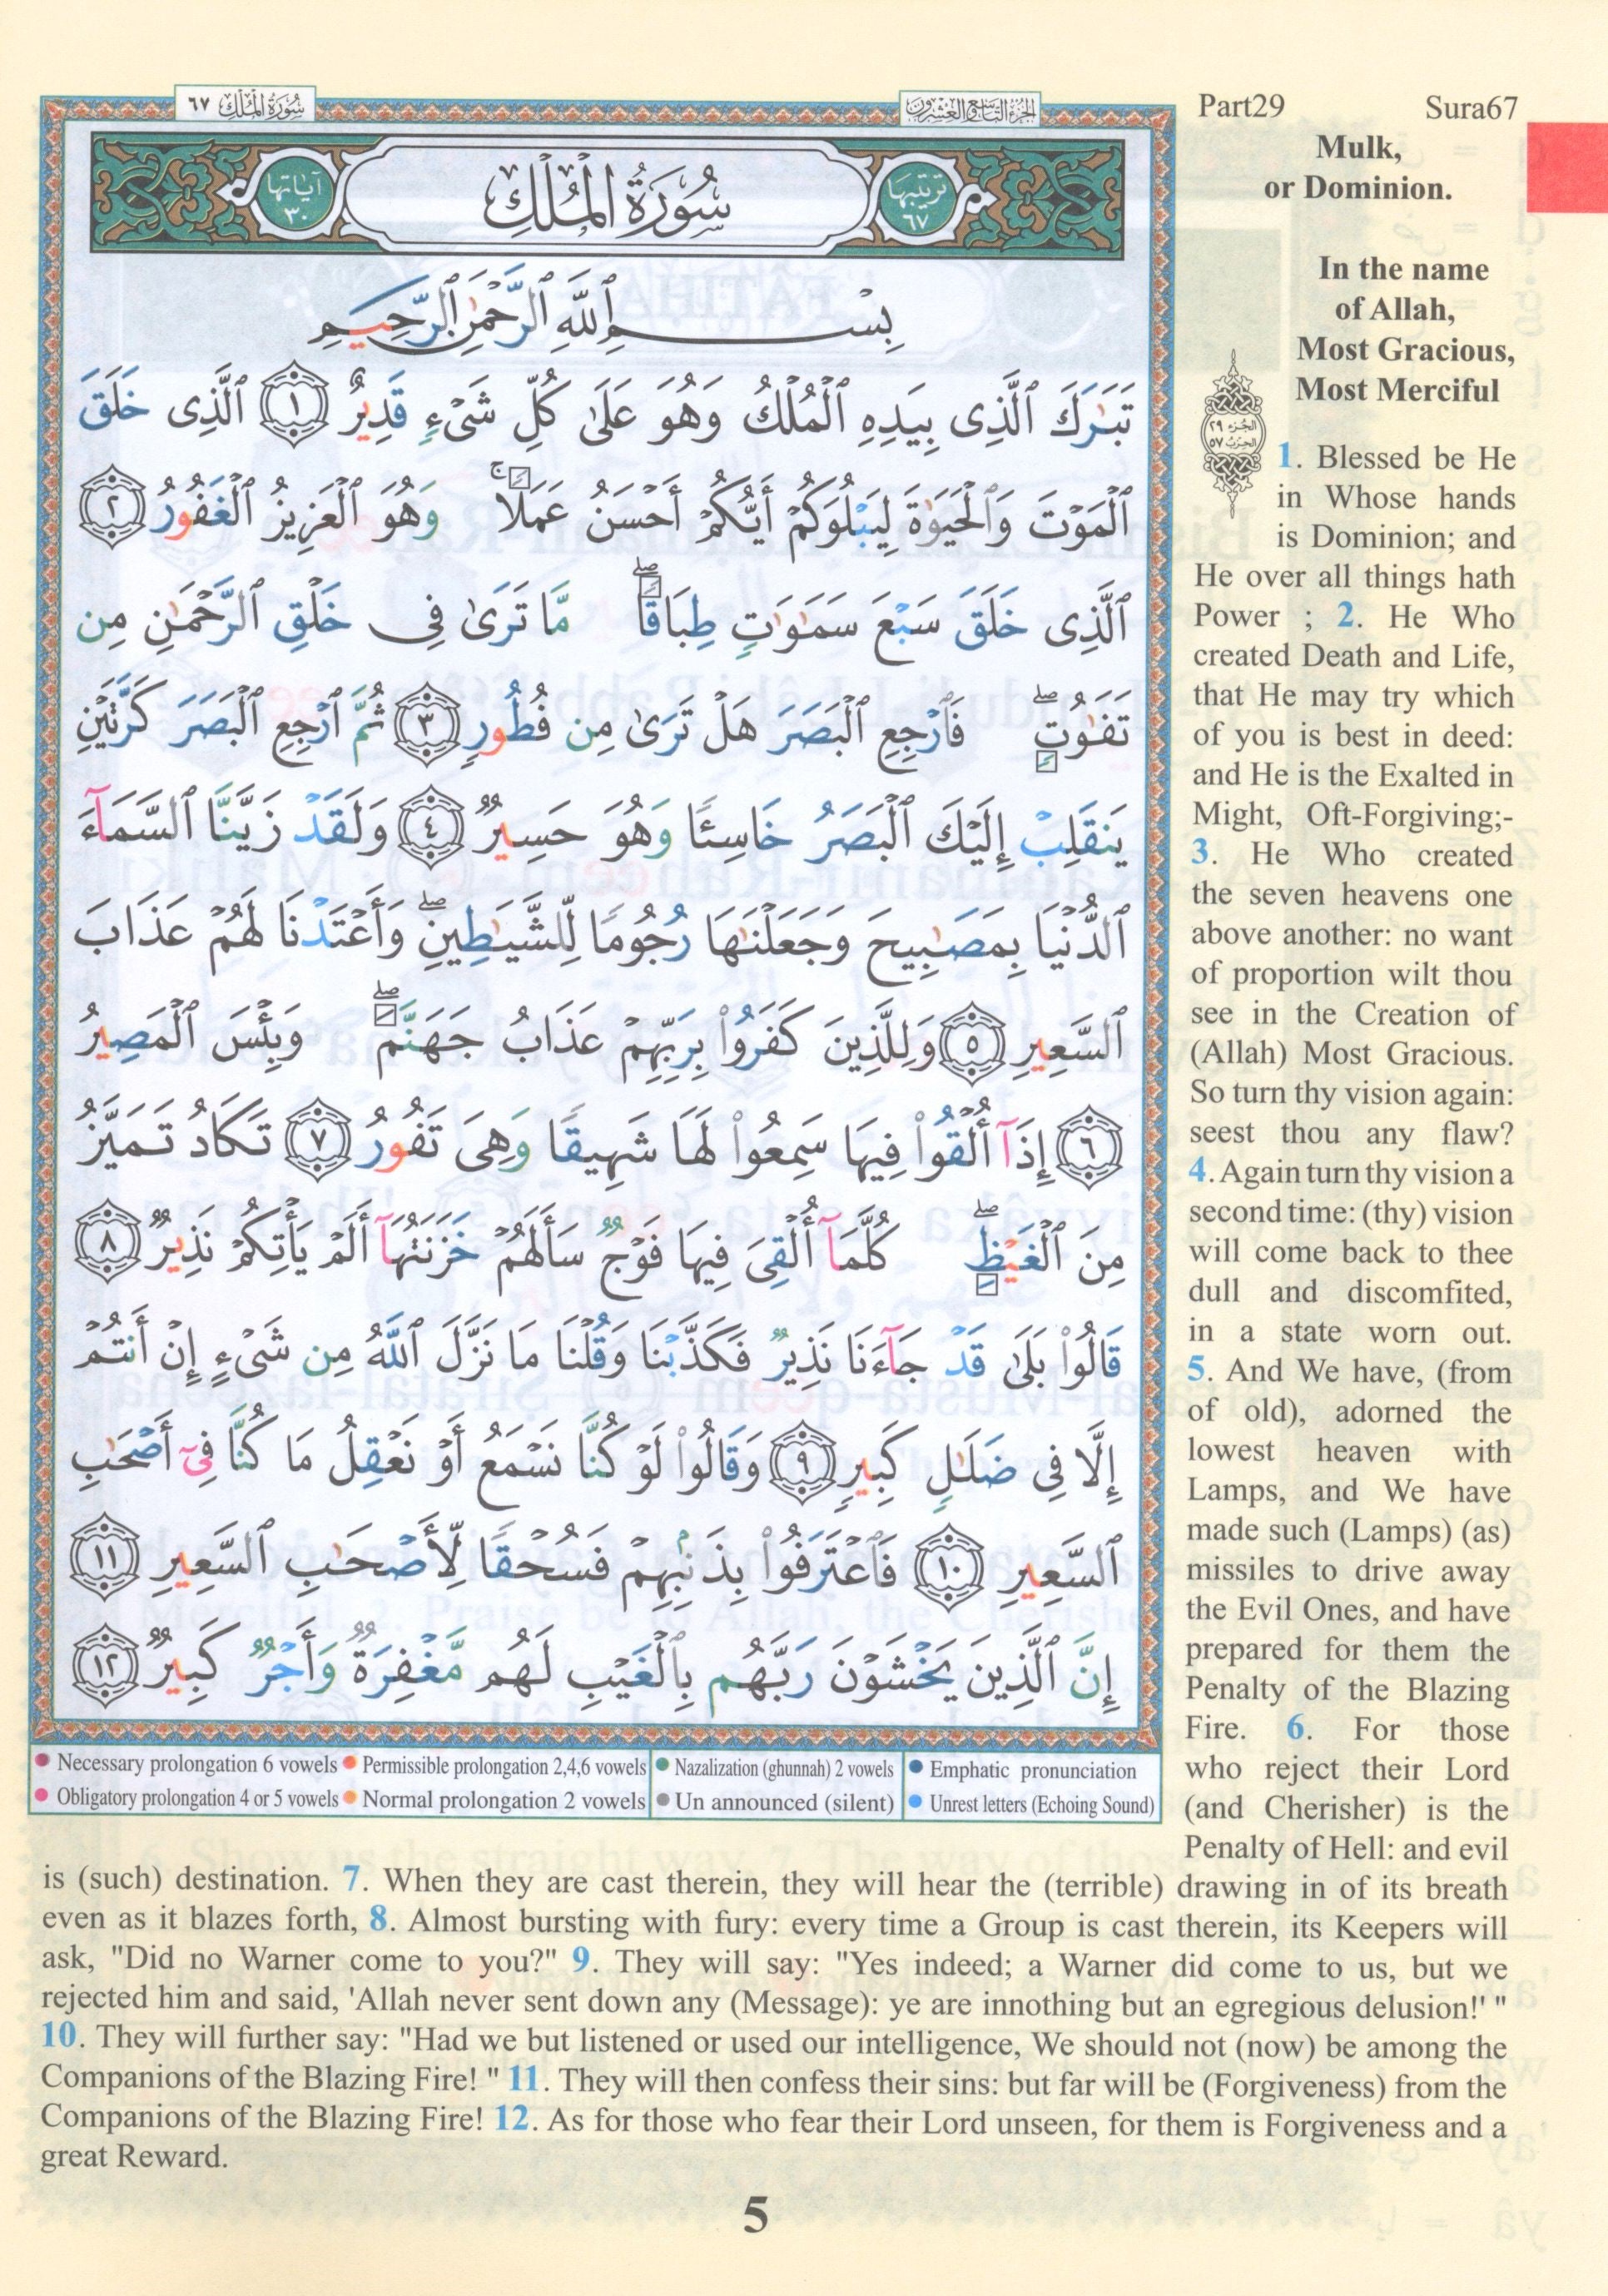 سُورَةُ المُلْكِ ٦٧
الجُزْءُ التَّاسِعُ وَالعِشْرُونَ
Part29 Sura67
ترتيبها ٦٧
سُورَةُ المُلْكِ
آياتها ٣٠
بِسْمِ ٱللَّهِ ٱلرَّحْمَٰنِ ٱلرَّحِيمِ
تَبَٰرَكَ ٱلَّذِى بِيَدِهِ ٱلْمُلْكُ وَهُوَ عَلَىٰ كُلِّ شَىْءٍ قَدِيرٌ ١ ٱلَّذِى خَلَقَ
ٱلْمَوْتَ وَٱلْحَيَوٰةَ لِيَبْلُوَكُمْ أَيُّكُمْ أَحْسَنُ عَمَلًا ۚ وَهُوَ ٱلْعَزِيزُ ٱلْغَفُورُ ٢
ٱلَّذِى خَلَقَ سَبْعَ سَمَٰوَٰتٍ طِبَاقًا ۖ مَّا تَرَىٰ فِى خَلْقِ ٱلرَّحْمَٰنِ مِن
تَفَٰوُتٍ ۖ فَٱرْجِعِ ٱلْبَصَرَ هَلْ تَرَىٰ مِن فُطُورٍ ٣ ثُمَّ ٱرْجِعِ ٱلْبَصَرَ كَرَّتَيْنِ
يَنقَلِبْ إِلَيْكَ ٱلْبَصَرُ خَاسِئًا وَهُوَ حَسِيرٌ ٤ وَلَقَدْ زَيَّنَّا ٱلسَّمَآءَ
ٱلدُّنْيَا بِمَصَٰبِيحَ وَجَعَلْنَٰهَا رُجُومًا لِّلشَّيَٰطِينِ ۖ وَأَعْتَدْنَا لَهُمْ عَذَابَ
ٱلسَّعِيرِ ٥ وَلِلَّذِينَ كَفَرُوا۟ بِرَبِّهِمْ عَذَابُ جَهَنَّمَ ۖ وَبِئْسَ ٱلْمَصِيرُ
٦ إِذَآ أُلْقُوا۟ فِيهَا سَمِعُوا۟ لَهَا شَهِيقًا وَهِىَ تَفُورُ ٧ تَكَادُ تَمَيَّزُ
مِنَ ٱلْغَيْظِ ۖ كُلَّمَآ أُلْقِىَ فِيهَا فَوْجٌ سَأَلَهُمْ خَزَنَتُهَآ أَلَمْ يَأْتِكُمْ نَذِيرٌ ٨
قَالُوا۟ بَلَىٰ قَدْ جَآءَنَا نَذِيرٌ فَكَذَّبْنَا وَقُلْنَا مَا نَزَّلَ ٱللَّهُ مِن شَىْءٍ إِنْ أَنتُمْ
إِلَّا فِى ضَلَٰلٍ كَبِيرٍ ٩ وَقَالُوا۟ لَوْ كُنَّا نَسْمَعُ أَوْ نَعْقِلُ مَا كُنَّا فِىٓ أَصْحَٰبِ
ٱلسَّعِيرِ ١٠ فَٱعْتَرَفُوا۟ بِذَنۢبِهِمْ فَسُحْقًا لِّأَصْحَٰبِ ٱلسَّعِيرِ ١١
إِنَّ ٱلَّذِينَ يَخْشَوْنَ رَبَّهُم بِٱلْغَيْبِ لَهُم مَّغْفِرَةٌ وَأَجْرٌ كَبِيرٌ ١٢
Necessary prolongation 6 vowels Permissible prolongation 2,4,6 vowels Nazalization (ghunnah) 2 vowels Emphatic pronunciation
Obligatory prolongation 4 or 5 vowels Normal prolongation 2 vowels Un announced (silent) Unrest letters (Echoing Sound)
Mulk,
or Dominion.
In the name
of Allah,
Most Gracious,
Most Merciful
الجزء ٢٩
الحزب ٥٧
1. Blessed be He
in Whose hands
is Dominion; and
He over all things hath
Power ; 2. He Who
created Death and Life,
that He may try which
of you is best in deed:
and He is the Exalted in
Might, Oft-Forgiving;-
3. He Who created
the seven heavens one
above another: no want
of proportion wilt thou
see in the Creation of
(Allah) Most Gracious.
So turn thy vision again:
seest thou any flaw?
4. Again turn thy vision a
second time: (thy) vision
will come back to thee
dull and discomfited,
in a state worn out.
5. And We have, (from
of old), adorned the
lowest heaven with
Lamps, and We have
made such (Lamps) (as)
missiles to drive away
the Evil Ones, and have
prepared for them the
Penalty of the Blazing
Fire. 6. For those
who reject their Lord
(and Cherisher) is the
Penalty of Hell: and evil
is (such) destination. 7. When they are cast therein, they will hear the (terrible) drawing in of its breath
even as it blazes forth, 8. Almost bursting with fury: every time a Group is cast therein, its Keepers will
ask, "Did no Warner come to you?" 9. They will say: "Yes indeed; a Warner did come to us, but we
rejected him and said, 'Allah never sent down any (Message): ye are innothing but an egregious delusion!' "
10. They will further say: "Had we but listened or used our intelligence, We should not (now) be among the
Companions of the Blazing Fire! " 11. They will then confess their sins: but far will be (Forgiveness) from the
Companions of the Blazing Fire! 12. As for those who fear their Lord unseen, for them is Forgiveness and a
great Reward.
5